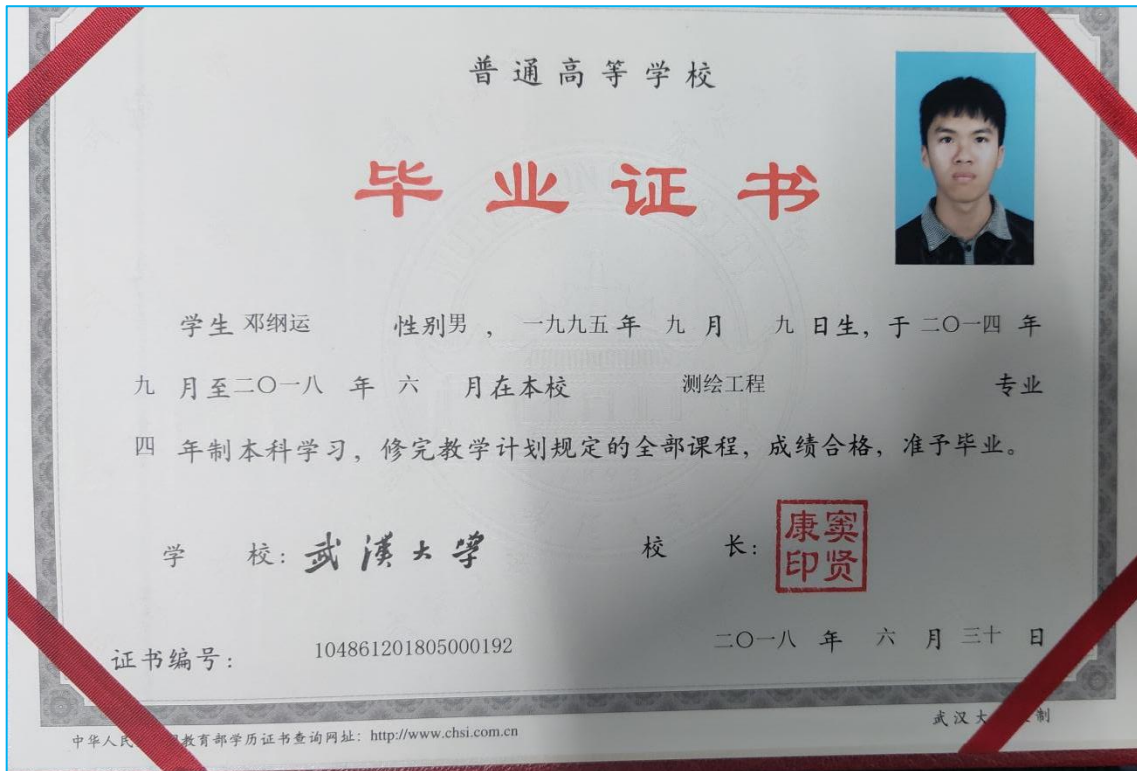 普通高等学校
毕业证书
学生 邓纲运 性别男，一九九五年 九 月 九 日生，于二〇一四 年
九 月至二〇一八 年 六 月在本校 测绘工程 专业
四 年制本科学习，修完教学计划规定的全部课程，成绩合格，准予毕业。
学 校：武漢大學 校 长：窦贤康印
证书编号： 104861201805000192 二〇一八 年 六 月 三十 日
武汉大 制
中华人民 教育部学历证书查询网址：http://www.chsi.com.cn